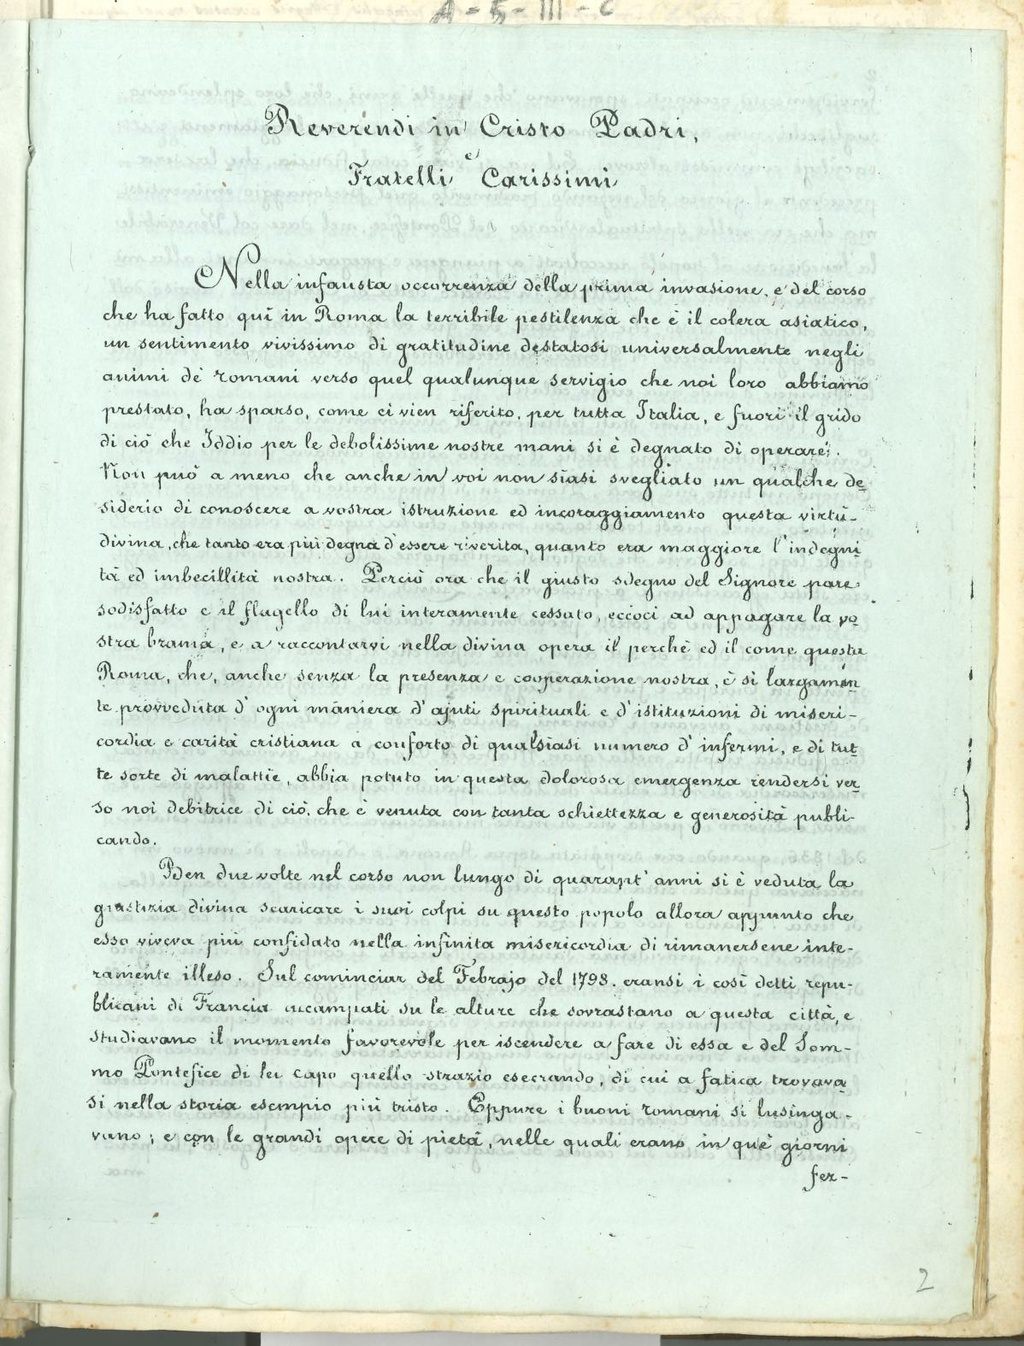 A-5-III-C
Reverendi in Cristo Padri,
e
Fratelli Carissimi
Nella infausta occorrenza della prima invasione, e del corso
che ha fatto quì in Roma la terribile pestilenza che è il colera asiatico,
un sentimento vivissimo di gratitudine destatosi universalmente negli
animi de' romani verso quel qualunque servigio che noi loro abbiamo
prestato, ha sparso, come ci vien riferito, per tutta Italia, e fuori il grido
di ciò che Iddio per le debolissime nostre mani si è degnato di operare.
Non può a meno che anche in voi non siasi svegliato un qualche de-
siderio di conoscere a vostra istruzione ed incoraggiamento questa virtù
divina, che tanto era più degna d'essere riverita, quanto era maggiore l'indegni
tà ed imbecillità nostra. Perciò ora che il giusto sdegno del Signore pare
sodisfatto e il flagello di lui interamente cessato, eccoci ad appagare la vo
stra brama, e a raccontarvi nella divina opera il perchè ed il come questa
Roma, che, anche senza la presenza e cooperazione nostra, è sì largamen
te provveduta d'ogni maniera d'ajuti spirituali e d'istituzioni di miseri-
cordia e carità cristiana a conforto di qualsiasi numero d'infermi, e di tut
te sorte di malattie, abbia potuto in questa dolorosa emergenza rendersi ver
so noi debitrice di ciò, che è venuta con tanta schiettezza e generosità publi-
cando.
Ben due volte nel corso non lungo di quarant' anni si è veduta la
giustizia divina scaricare i suoi colpi su questo popolo allora appunto che
esso viveva più confidato nella infinita misericordia di rimanersene inte-
ramente illeso. Sul cominciar del Febrajo del 1798. eransi i così detti repu-
blicani di Francia accampati su le alture che sovrastano a questa città, e
studiavano il momento favorevole per iscendere a fare di essa e del Som-
mo Pontefice di lei capo quello strazio esecrando, di cui a fatica trovava
si nella storia esempio più tristo. Eppure i buoni romani si lusinga-
vano; e con le grandi opere di pietà, nelle quali erano in que' giorni
fer-
2